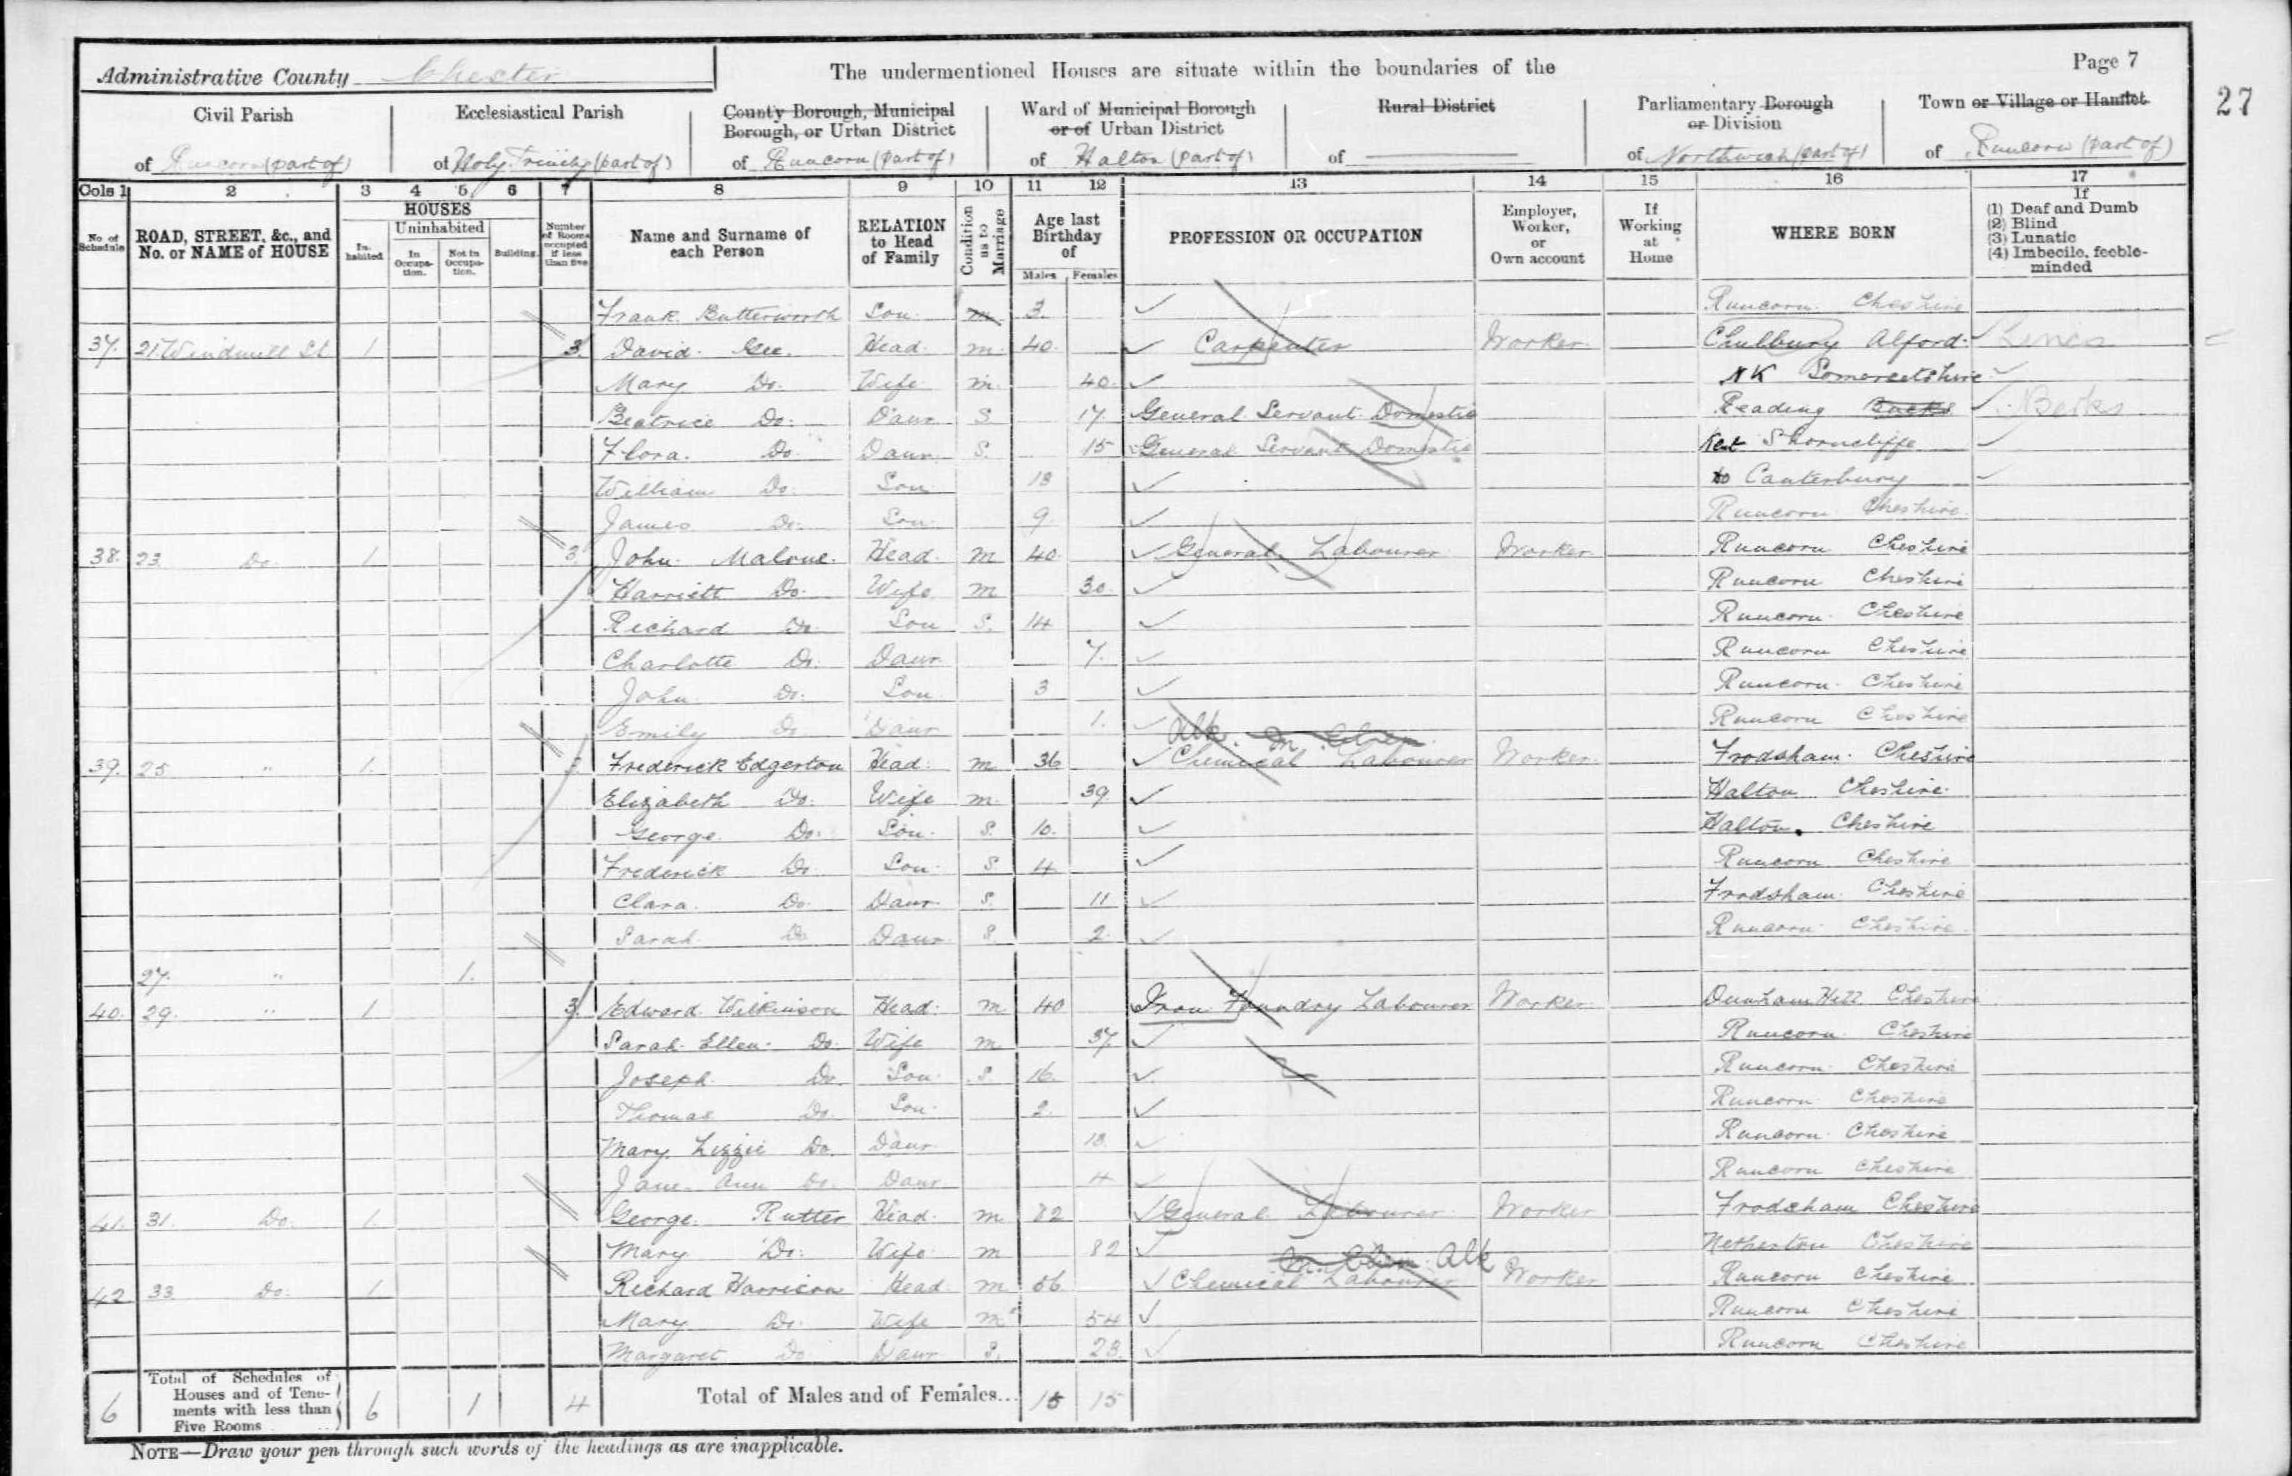 Administrative County Chester
The undermentioned Houses are situate within the boundaries of the
Page 7
27
Civil Parish of Runcorn (part of)
Ecclesiastical Parish of Holy Trinity (part of)
County Borough, Municipal Borough, or Urban District of Runcorn (part of)
Ward of Municipal Borough or of Urban District of Halton (part of)
Rural District of
Parliamentary Borough or Division of Northwich (part of)
Town or Village or Hamlet of Runcorn (part of)
Cols 1 2 3 4 5 6 7 8 9 10 11 12 13 14 15 16 17
No of Schedule
ROAD, STREET, &c., and No. or NAME of HOUSE
HOUSES
Inhabited
Uninhabited
In Occupation.
Not in Occupation.
Building.
Number of Rooms occupied if less than five
Name and Surname of each Person
RELATION to Head of Family
Condition as to Marriage
Age last Birthday of
Males Females
PROFESSION OR OCCUPATION
Employer, Worker, or Own account
If Working at Home
WHERE BORN
If
(1) Deaf and Dumb
(2) Blind
(3) Lunatic
(4) Imbecile, feeble-minded
Frank Butterworth Son m 3 Runcorn Cheshire
37. 21 Windmill St 1 3 David Gee. Head m 40 Carpenter Worker Alford Lincs
Mary Do. Wife m 40 NK Somersetshire
Beatrice Do. Daur S 17 General Servant Domestic Reading Bucks Berks
Flora. Do Daur S. 15 General Servant Domestic Kent Shorncliffe
William Do. Son 13 Do Canterbury
James Do. Son 9 Runcorn Cheshire
38. 23 Do. 1 3. John Malone. Head m 40 General Labourer Worker Runcorn Cheshire
Harriett Do. Wife m 30 Runcorn Cheshire
Richard Do Son S. 14 Runcorn Cheshire
Charlotte Do. Daur 7. Runcorn Cheshire
John Do. Son 3 Runcorn Cheshire
Emily Do Daur 1. Runcorn Cheshire
Alk. m Chem
39. 25 " 1. Frederick Edgerton Head m 36 Chemical Labourer Worker Frodsham Cheshire
Elizabeth Do. Wife m. 39 Halton Cheshire
George Do. Son S. 10. Halton Cheshire
Frederick Do Son S. 4 Runcorn Cheshire
Clara. Do Daur S. 11 Frodsham Cheshire
Sarah Do Daur S. 2 Runcorn Cheshire
27. " 1.
40. 29. " 1 3 Edward Wilkinson Head m 40 Iron Foundry Labourer Worker Dunham Hill Cheshire
Sarah Ellen Do. Wife m 37 Runcorn Cheshire
Joseph Do. Son S 16. Runcorn Cheshire
Thomas Do Son 2. Runcorn Cheshire
Mary Lizzie Do. Daur 13 Runcorn Cheshire
Jane Ann Do. Daur 4 Runcorn Cheshire
41. 31. Do. 1. George Rutter Head m 82 General Labourer Worker Frodsham Cheshire
Mary Do. Wife m 82 Cheshire
m. Chem Alk
42 33 Do. 1 Richard Harrison Head m 56 Chemical Labourer Worker Runcorn Cheshire
Mary Do. Wife m 54 Runcorn Cheshire
Margaret Do Daur S. 23 Runcorn Cheshire
6 Total of Schedules of Houses and of Tenements with less than Five Rooms 6 1 4 Total of Males and of Females... 15 15
NOTE—Draw your pen through such words of the headings as are inapplicable.